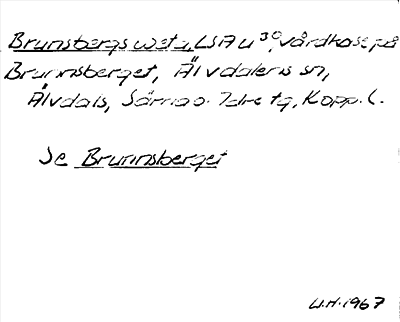 Brunsbergs weta, LSA u 30, vårdkase på
Brunnsberget, Älvdalens sn,
Älvdals, Särna o. Idre tg, Kopp. l.
Se Brunnsberget
U.H. 1967